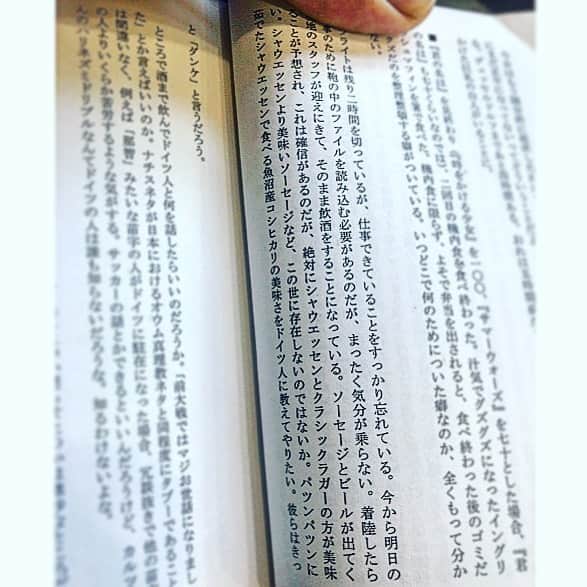 ■『君の名は』を見終わり、『時をかける少女』を一〇〇、『サマーウォーズ』を七十とした場合、『君
の名は』も七十くらいなのでは。二回目の機内食を食べ終わった。汗気でグズグズになったイングリ
シュマフィンを箸で食べた。機内食に限らず、よそで弁当を出されると、食べ終わった後のゴミだ
クズだのを整理整頓する癖がついている。いつどこで何のためについた癖なのか、全くもって分か
ない。
フライトは残り二時間を切っているが、仕事できていることをすっかり忘れている。今から明日の
のために鞄の中のファイルを読み込む必要があるのだが、まったく気分が乗らない。着陸したら
地のスタッフが迎えにきて、そのまま飲酒をすることになっている。ソーセージとビールが出てく
ことが予想され、これは確信があるのだが、絶対にシャウエッセンとクラシックラガーの方が美味
い。シャウエッセンより美味いソーセージなど、この世に存在しないのではないか。パツンパツンに
茹でたシャウエッセンで食べる魚沼産コシヒカリの美味さをドイツ人に教えてやりたい。彼らはきっ
と「ダンケ」と言うだろう。
ところで酒まで飲んでドイツ人と何を話したらいいのだろうか、「前大戦ではマジお世話になりまし
た」とか言えばいいのか。ナチスネタが日本におけるオウム真理教ネタと同程度にタブーであること
は間違いなく、例えば「那智」みたいな苗字の人がドイツに駐在になった場合、冗談抜きで他の苗
の人よりいくらか苦労するような気がする。サッカーの話とかできるといいんだろうけど、カルツ
んのハリネズミドリブルなんてドイツの人は誰も知らないだろうな。知るわけないよな。